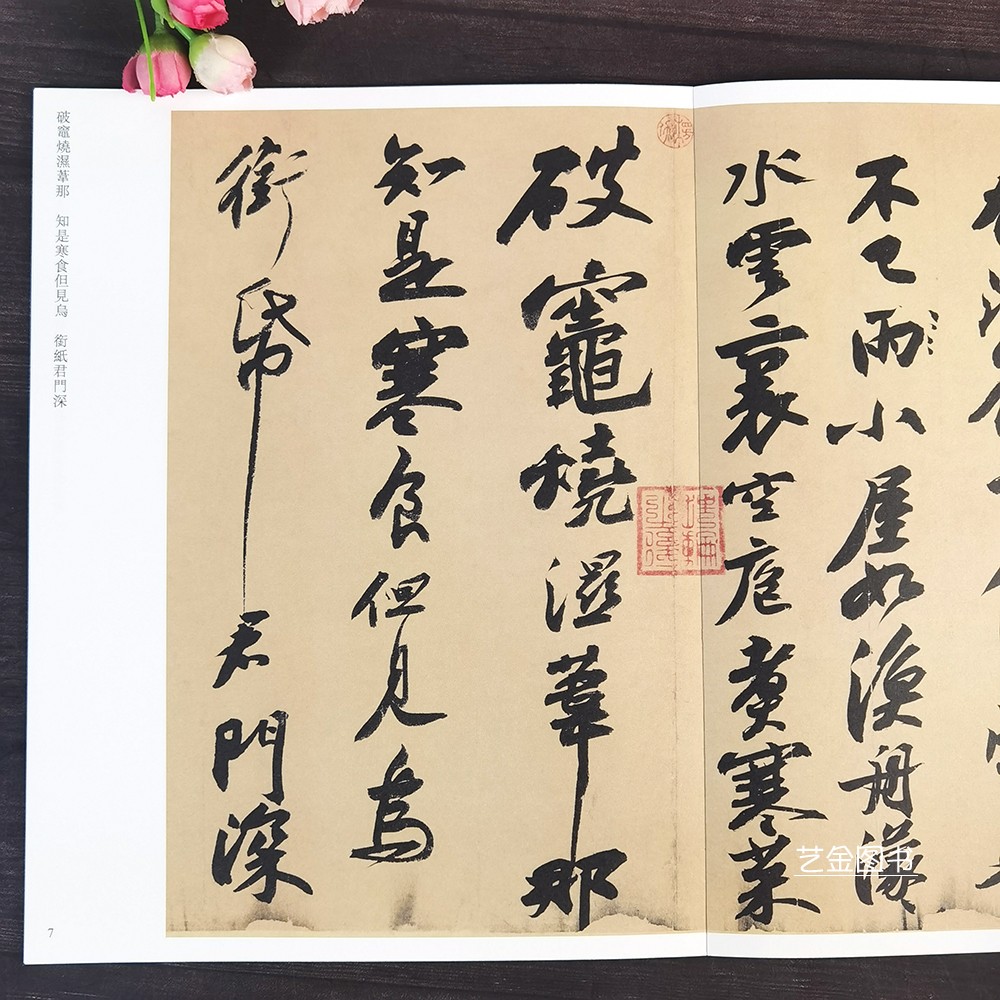 不已雨小屋如漁舟濛〻
水雲裏空庖煮寒菜
破竈燒濕葦那
知是寒食但見烏
銜帋君門深
破竈燒濕葦那 知是寒食但見烏 銜紙君門深
7
艺金图书